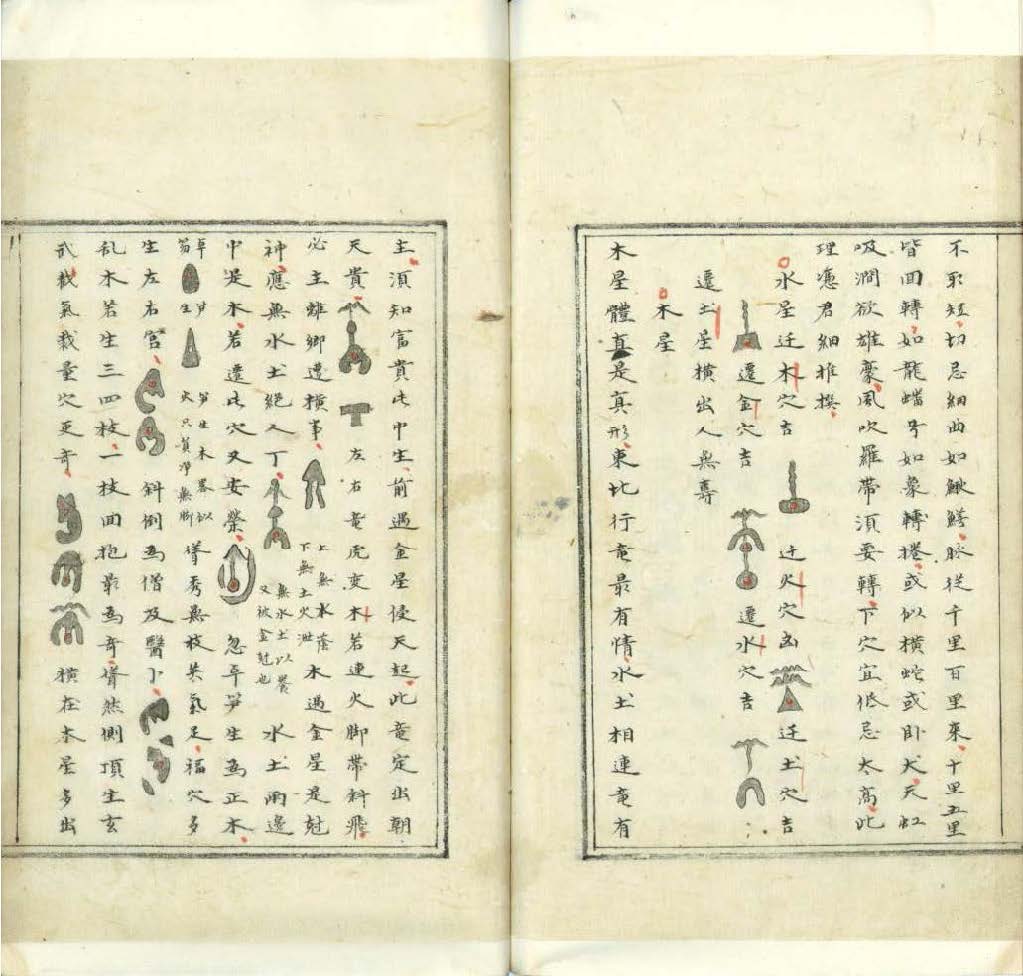 不取短切忌細曲如鰍鱔脉從千里百里來十里五里
皆回轉如龍蟠兮如象轉捲或似橫蛇或卧犬天虹
吸澗欲雄豪風吹羅帶須要轉下穴宜低忌太高此
理憑君細推撰
水星迁木穴吉 迁火穴凶 迁土穴吉
遷金穴吉 遷水穴吉
遷土星橫出人無壽
木星
木星體真是真形東北行竜最有情水土相連竜有
主須知富貴此中生前遇金星侵天起此竜定出朝
天貴 左右竜虎变木若連火脚帶斜飛
必主離鄉遭橫事 上無水蔭
下無土火泄 木遇金星是尅
神應無水土絕人丁 無水土以養
又被金尅也 水土兩邊
中是木若遷此穴又安榮 忽年笋生為正木
卓笏 尹生 笋生木畧似
火只質净無脚 聳秀無枝英氣足福穴多
生左右宮 斜倒為僧及醫卜
乱木若生三四枝一枝回抱最為奇聳然側頂生玄
武裁氣裁量穴更奇 橫在木星多出